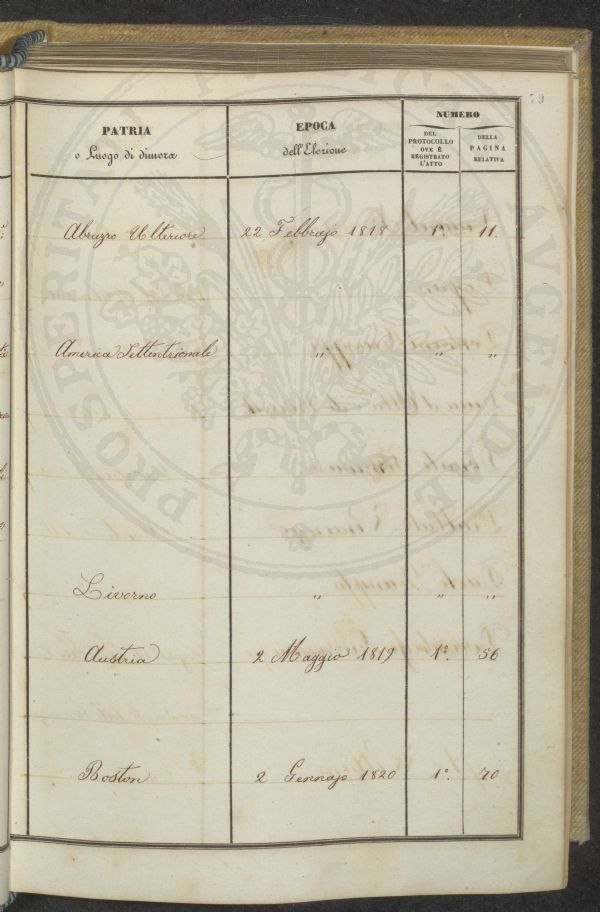 79
PATRIA
o Luogo di dimora
EPOCA
dell'Elezione
NUMERO
DEL
PROTOCOLLO
OVE È
REGISTRATO
L'ATTO
DELLA
PAGINA
RELATIVA
Abruzzo Ulteriore 22 Febbrajo 1818 1º. 11.
America Settentrionale " " "
Livorno " " "
Austria 2 Maggio 1819 1º. 56
Boston 2 Gennajo 1820 1º. 70
PROSPERITATI PUBLICAE AVGENDAE